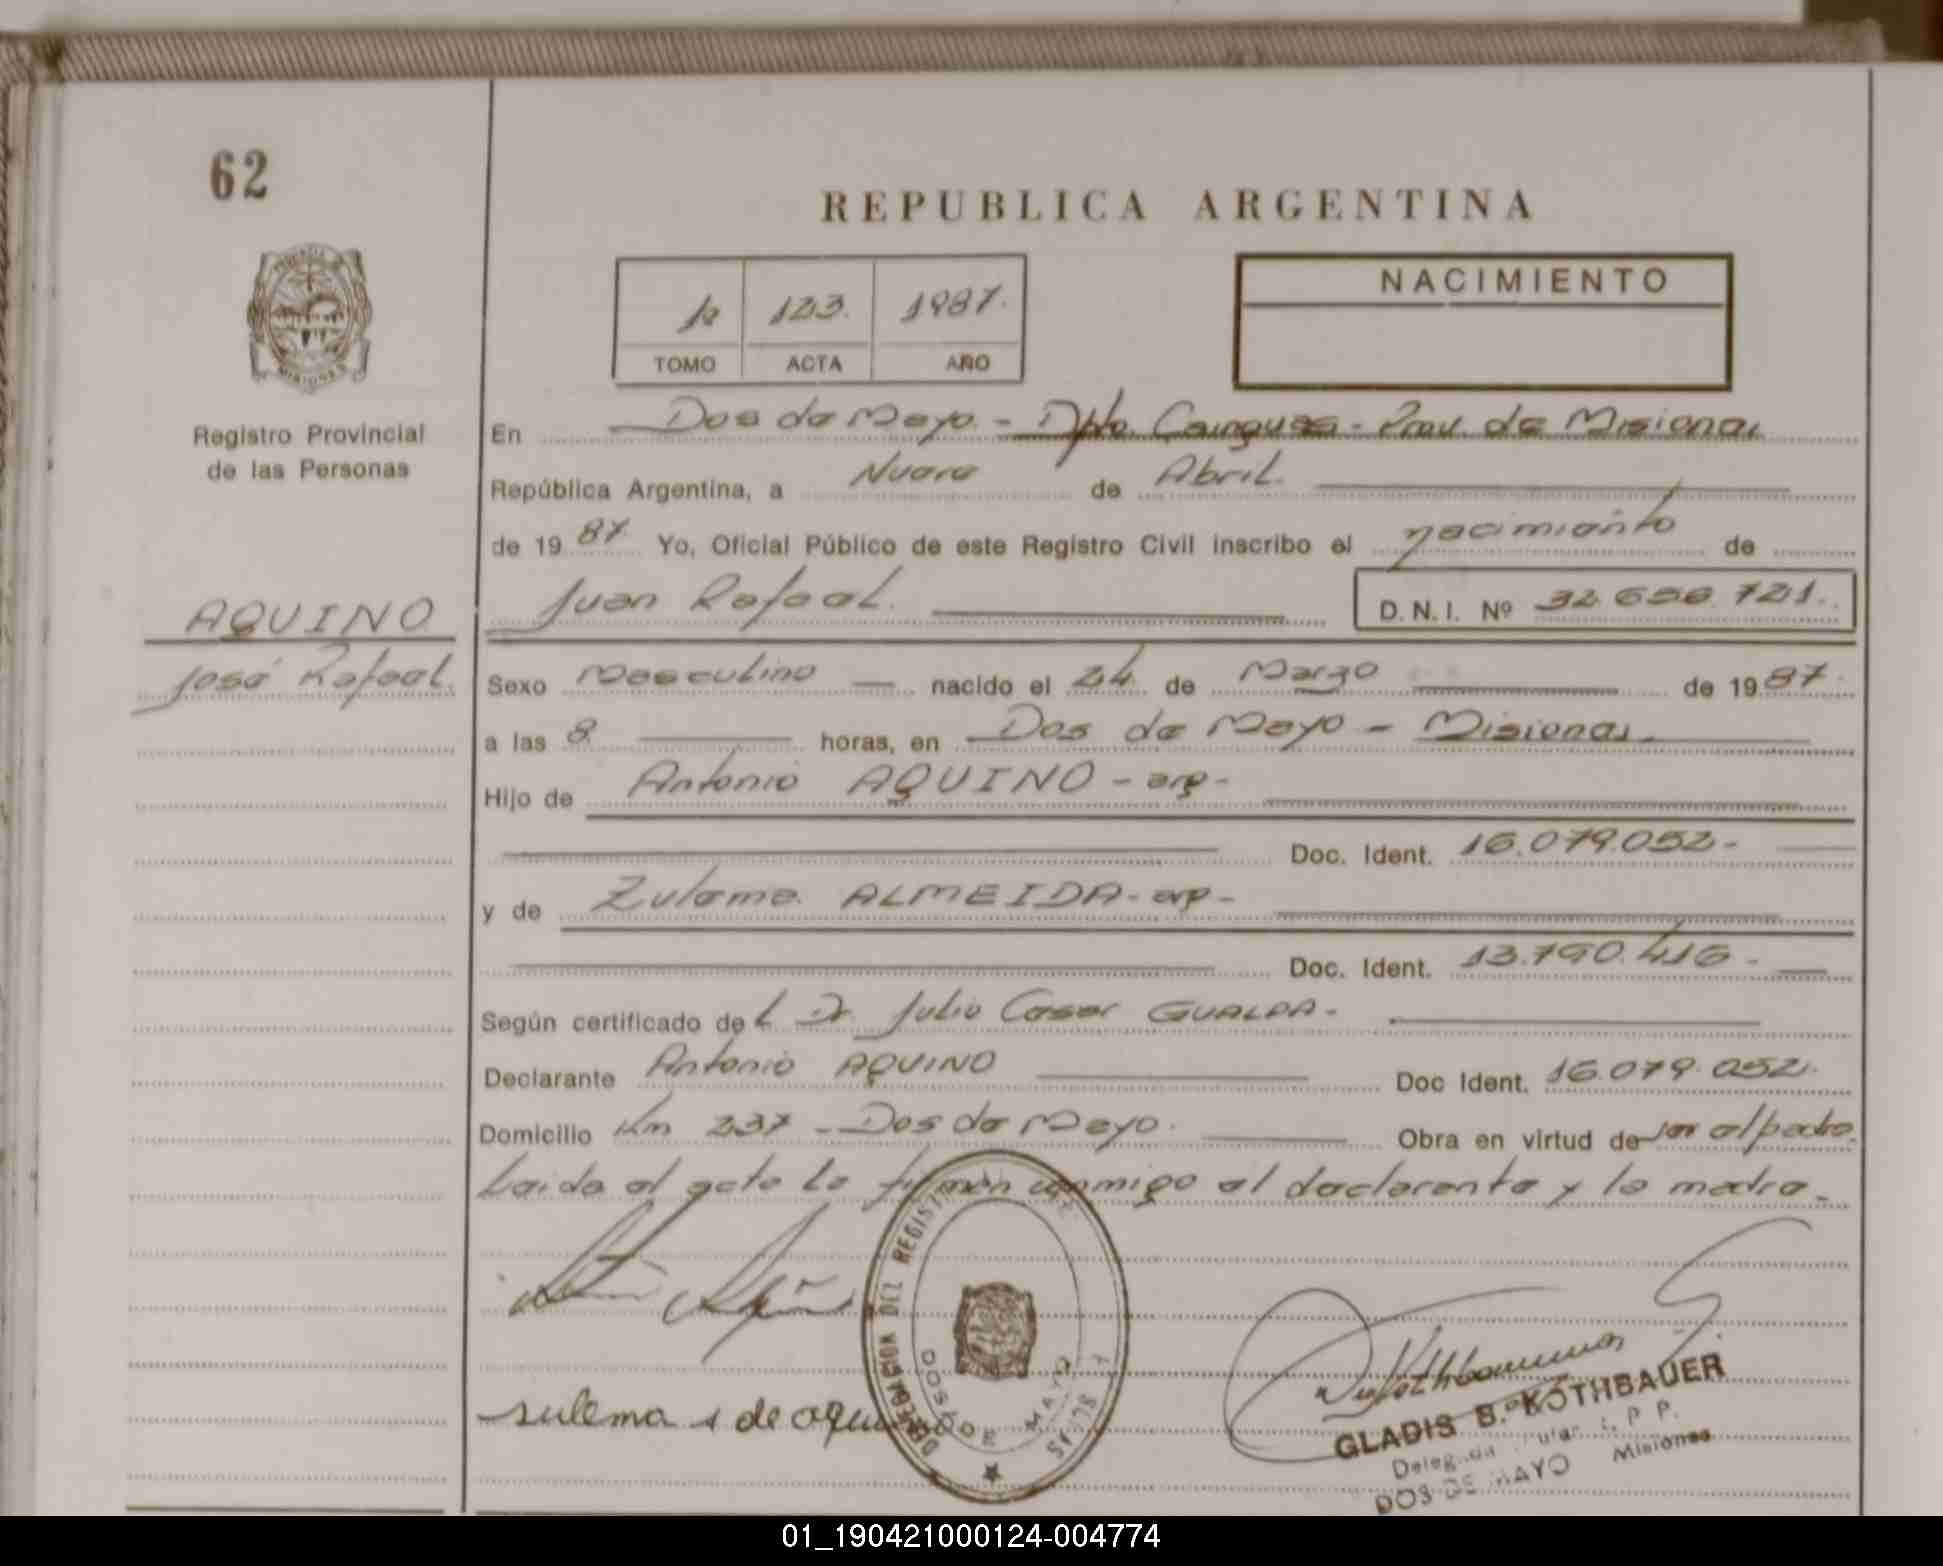 62
REPUBLICA ARGENTINA
1º 123. 1987.
TOMO ACTA AÑO
NACIMIENTO
Registro Provincial
de las Personas
En Dos de Mayo - Dpto. Cainguas - Prov. de Misiones
República Argentina, a Nueve de Abril.
de 1987 Yo, Oficial Público de este Registro Civil inscribo el nacimiento de
Juan Rafael. D.N.I. Nº 32.656.721.
AQUINO
José Rafael.
Sexo Masculino nacido el 24 de Marzo de 1987.
a las 8 horas, en Dos de Mayo - Misiones.
Hijo de Antonio AQUINO - arg -
Doc. Ident. 16.079.052 -
y de Zulema ALMEIDA - arg -
Doc. Ident. 13.790.416 -
Según certificado del Dr. Julio Cesar GUALDA -
Declarante Antonio AQUINO Doc Ident. 16.079.052.
Domicilio Km 237 - Dos de Mayo. Obra en virtud de ser el padre.
Leida el acta la firman conmigo el declarante y la madre -
sulema de
DELEGACION DEL REGISTRO
DOS DE MAYO
GLADIS B. KOTHBAUER
DOS DE MAYO Misiones
01_190421000124-004774